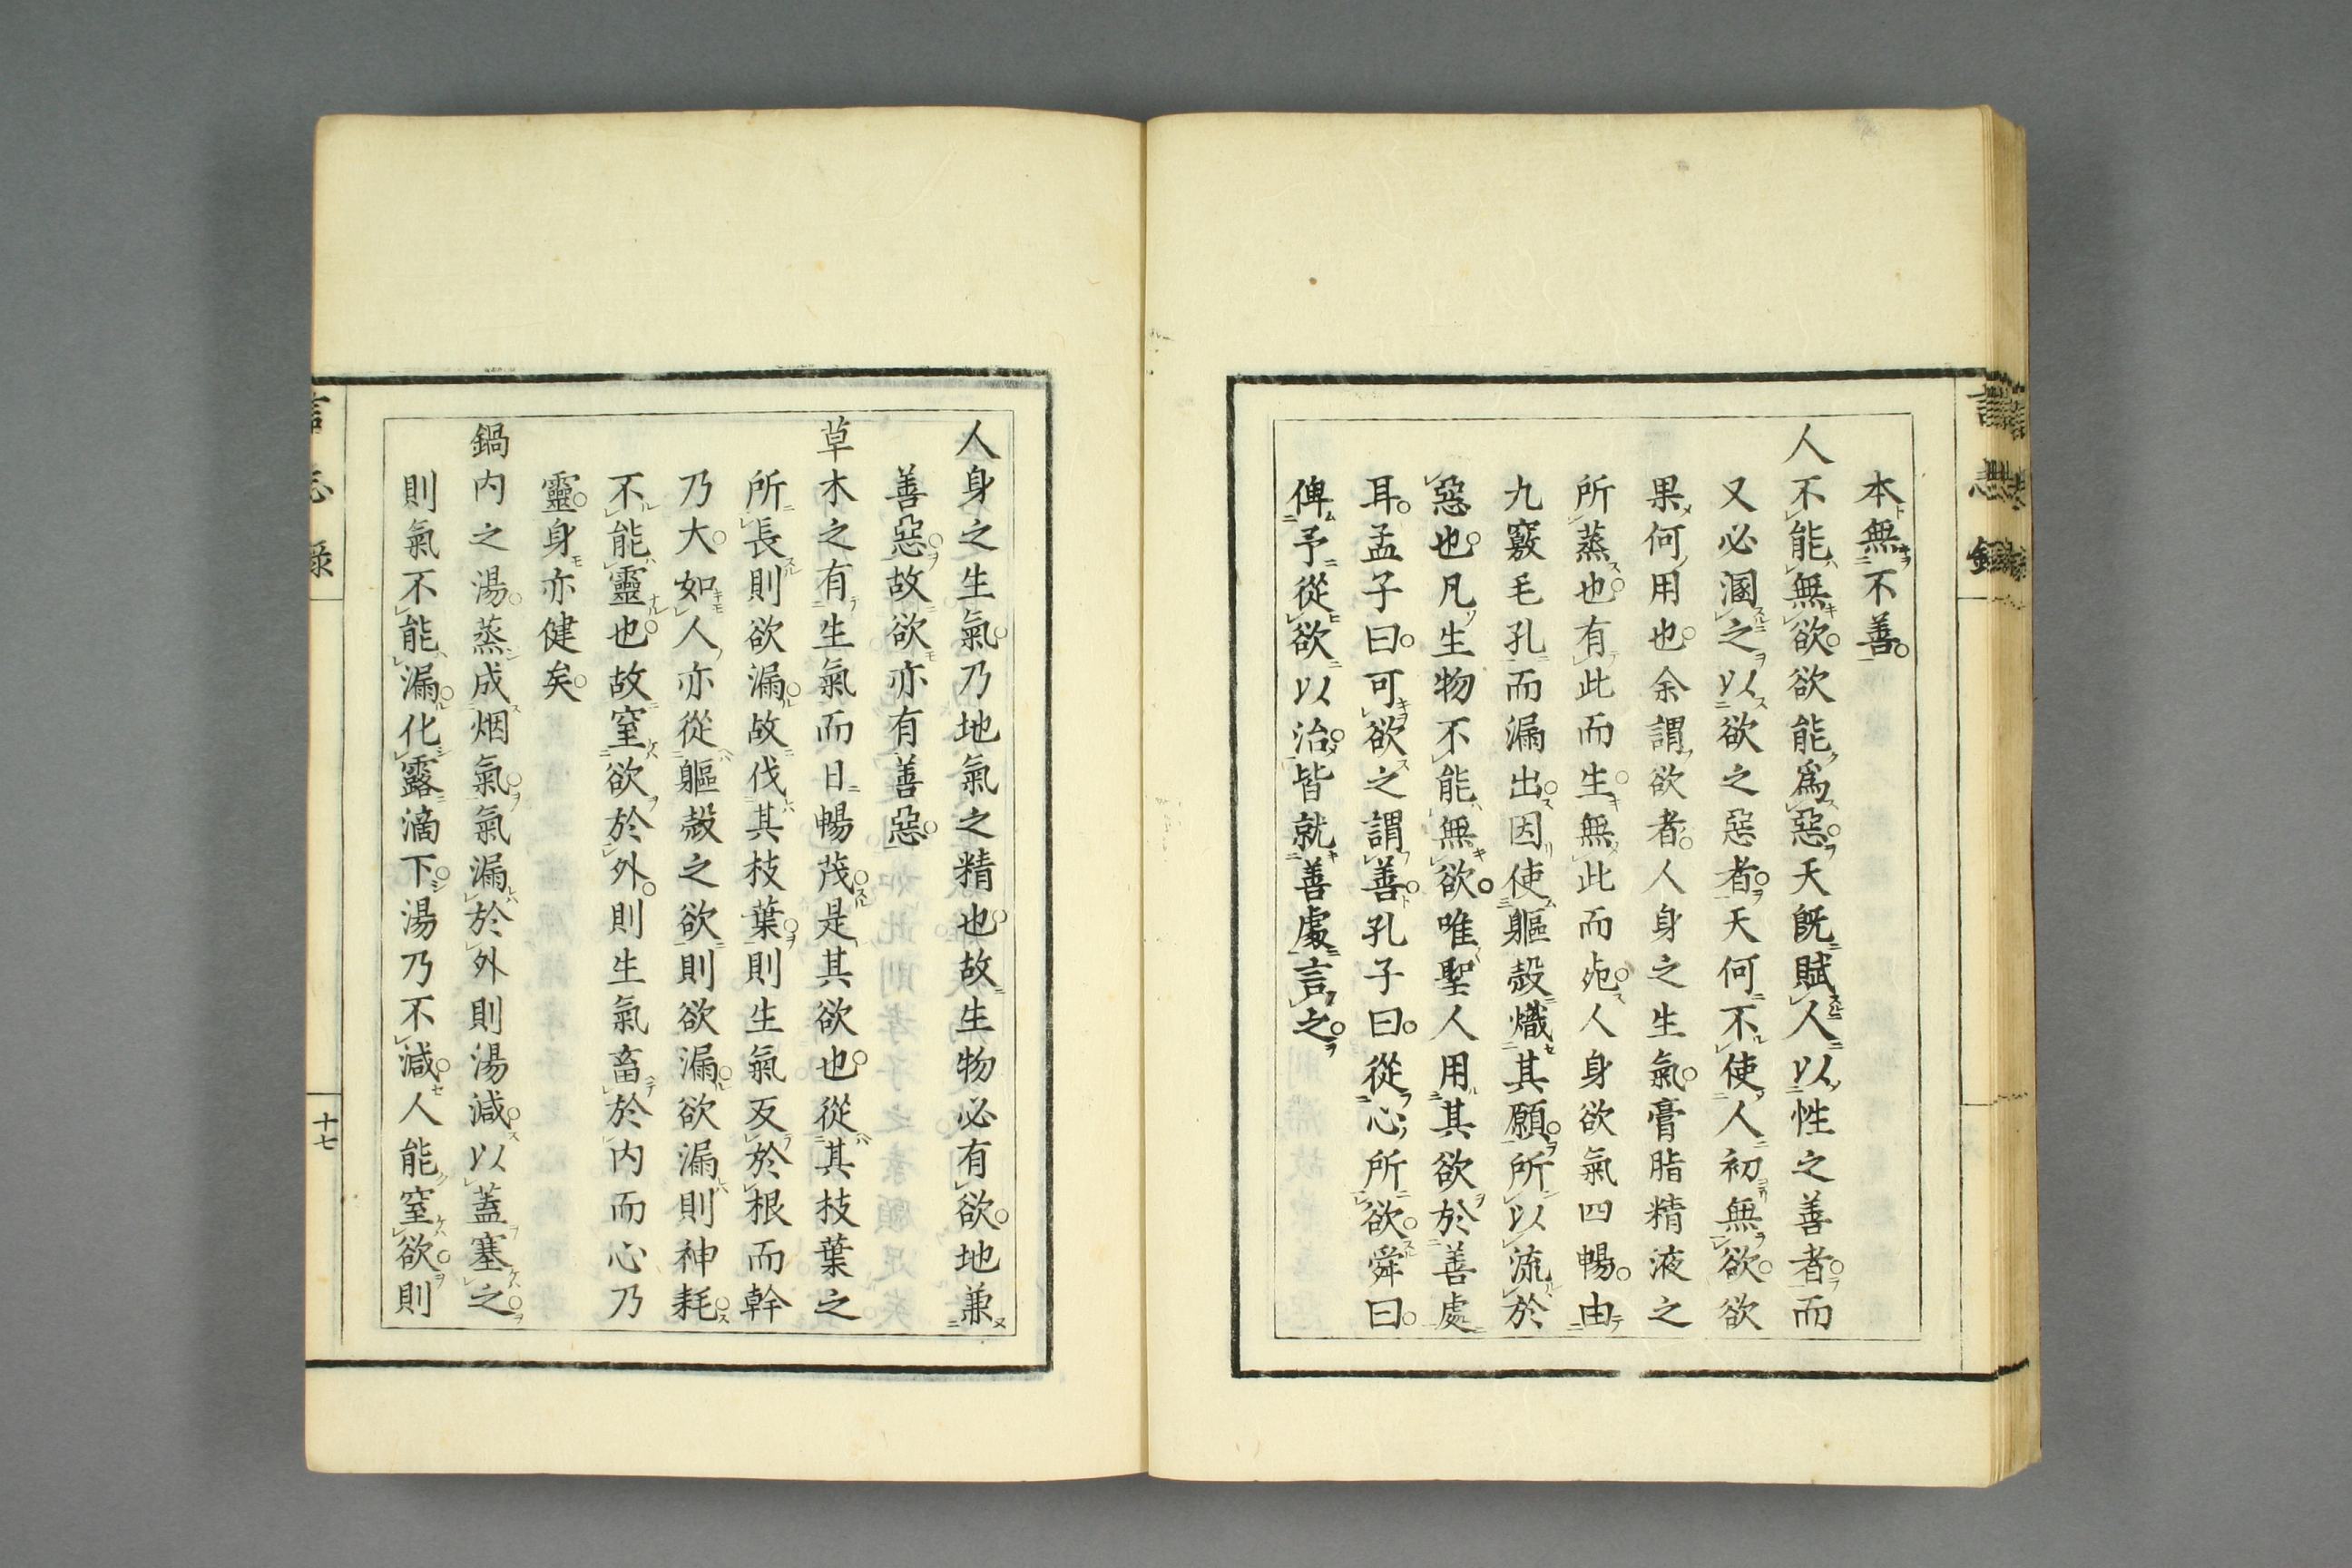 言志錄
本無不善
人不能無欲欲能爲惡天旣賦人以性之善者而
又必溷之以欲之惡者天何不使人初無欲欲
果何用也余謂欲者人身之生氣膏脂精液之
所蒸也有此而生無此而死人身欲氣四暢由
九竅毛孔而漏出因使軀殼熾其願所以流於
惡也凡生物不能無欲唯聖人用其欲於善處
耳孟子曰可欲之謂善孔子曰從心所欲舜曰
俾予從欲以治皆就善處言之
人身之生氣乃地氣之精也故生物必有欲地兼
善惡故欲亦有善惡
草木之有生氣而日暢茂是其欲也從其枝葉之
所長則欲漏故伐其枝葉則生氣反於根而幹
乃大如人亦從軀殼之欲則欲漏欲漏則神耗
不能靈也故窒欲於外則生氣畜於内而心乃
靈身亦健矣
鍋内之湯蒸成烟氣氣漏於外則湯減以蓋塞之
則氣不能漏化露滴下湯乃不減人能窒欲則
言志錄
十七